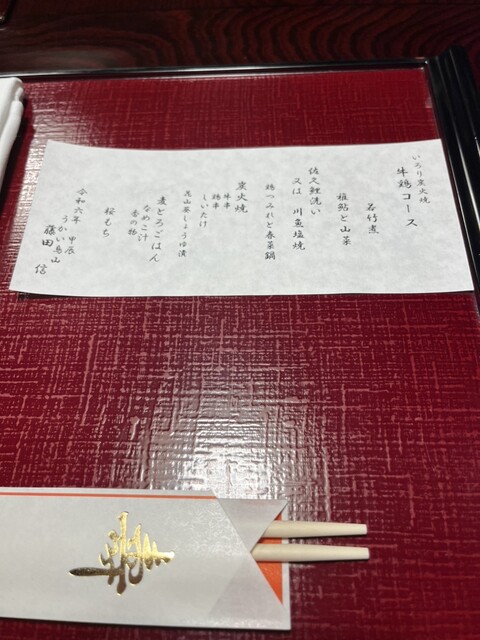 いろり炭火焼
牛鶏コース
若竹煮
稚鮎と山菜
佐久鯉洗い
又は 川魚塩焼
鶏つみれと春菜鍋
炭火焼
牛串
鶏串
しいたけ
葉山葵しょうゆ漬
麦とろごはん
なめこ汁
香の物
桜もち
令和六年 甲辰
うかい鳥山
藤田 信
寿